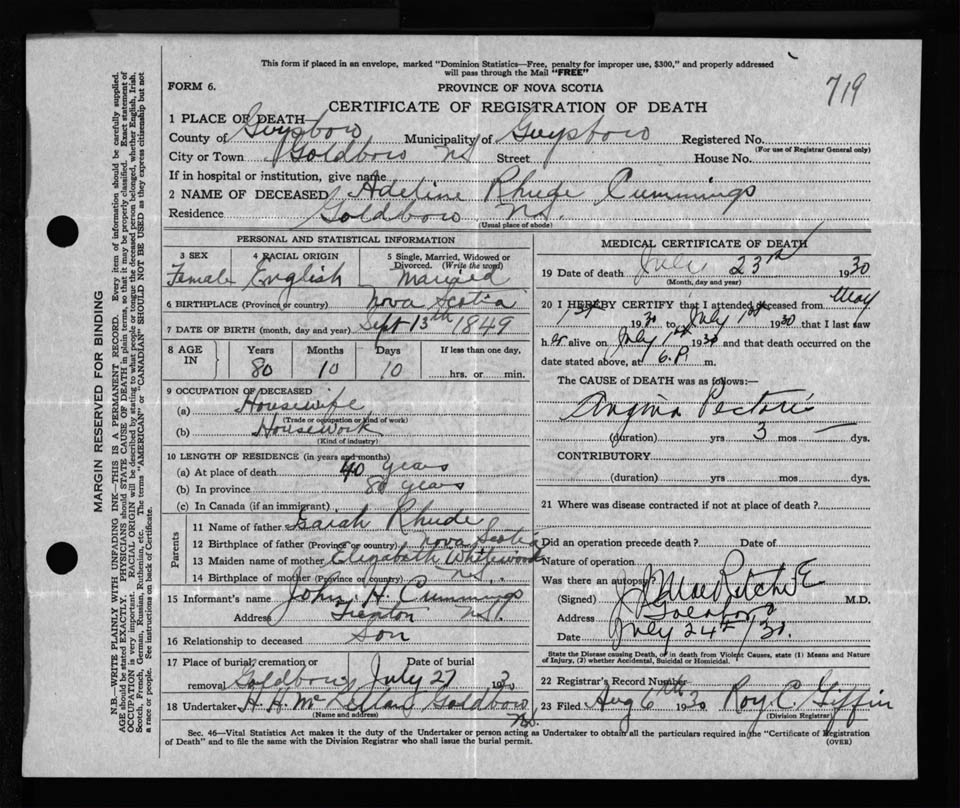 This form if placed in an envelope, marked "Dominion Statistics—Free, penalty for improper use, $300," and properly addressed
will pass through the Mail "FREE"
719
FORM 6.
PROVINCE OF NOVA SCOTIA
CERTIFICATE OF REGISTRATION OF DEATH
1 PLACE OF DEATH
County of Guysboro Municipality of Guysboro Registered No.
(For use of Registrar General only)
City or Town Goldboro NS Street House No.
If in hospital or institution, give name
2 NAME OF DECEASED Adeline Rhude Cummings
Residence Goldboro NS.
(Usual place of abode)
PERSONAL AND STATISTICAL INFORMATION
3 SEX 4 RACIAL ORIGIN 5 Single, Married, Widowed or
Divorced. (Write the word)
Female English Married
6 BIRTHPLACE (Province or country) Nova Scotia
7 DATE OF BIRTH (month, day and year) Sept 13th 1849
8 AGE IN Years Months Days If less than one day,
80 10 10 hrs. or min.
9 OCCUPATION OF DECEASED
(a) Housewife
(Trade or occupation or kind of work)
(b) Housework
(Kind of industry)
10 LENGTH OF RESIDENCE (in years and months)
(a) At place of death 40 years
(b) In province 80 years
(c) In Canada (if an immigrant)
Parents
11 Name of father Rhude
12 Birthplace of father (Province or country) Nova Scotia
13 Maiden name of mother Elizabeth
14 Birthplace of mother (Province or country) N.S.
15 Informant's name John H. Cummings
Address Trenton NS.
16 Relationship to deceased Son
17 Place of burial, cremation or Date of burial
removal Goldboro NS July 27 1930
18 Undertaker H. H. Goldboro
(Name and address)
N.S.
MEDICAL CERTIFICATE OF DEATH
19 Date of death July 23rd 1930
(Month, day and year)
20 I HEREBY CERTIFY that I attended deceased from May
1st 1930 to July 1st 1930 that I last saw
her alive on July 1st 1930 and that death occurred on the
date stated above, at 6 P. m.
The CAUSE OF DEATH was as follows:—
Angina Pectoris
(duration) yrs 3 mos — dys.
CONTRIBUTORY
(duration) yrs. mos. dys.
21 Where was disease contracted if not at place of death?
Did an operation precede death? Date of
Nature of operation
Was there an autopsy?
(Signed) M.D.
Address Goldboro
Date July 24th/30.
State the Disease causing Death, or in death from Violent Causes, state (1) Means and Nature
of Injury, (2) whether Accidental, Suicidal or Homicidal.
22 Registrar's Record Number
23 Filed Aug 6th 1930 Roy C. Giffin
(Division Registrar)
Sec. 46—Vital Statistics Act makes it the duty of the Undertaker or person acting as Undertaker to obtain all the particulars required in the "Certificate of Registration
of Death" and to file the same with the Division Registrar who shall issue the burial permit.
(OVER)
MARGIN RESERVED FOR BINDING
N.B.—WRITE PLAINLY WITH UNFADING INK—THIS IS A PERMANENT RECORD. Every item of information should be carefully supplied.
AGE should be stated EXACTLY. PHYSICIANS should STATE CAUSE OF DEATH in plain terms, so that it may be properly classified. Exact statement of
OCCUPATION is very important. RACIAL ORIGIN will be described by stating to what people or tongue the deceased person belonged, whether English, Irish,
Scotch, French, German, Russian, Ruthenian, etc. The terms "AMERICAN" or "CANADIAN" SHOULD NOT BE USED as they express citizenship but not
a race or people. See instructions on back of Certificate.